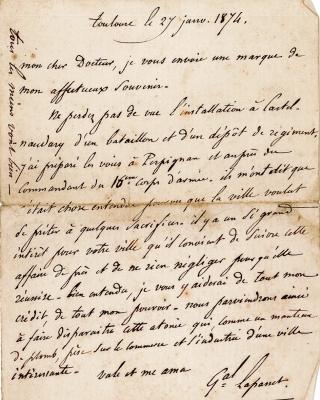 toulouse le 27 janv. 1874.
mon cher Docteur, je vous envoie une marque de
mon affectueux souvenir.
Ne perdez pas de vue l'installation à Castel-
naudary d'un bataillon et d'un dépôt de régiment,
j'ai préparé les voies à Perpignan et auprès du
commandant du 16eme corps d'armée. ils m'ont dit que
c'était chose entendue pourvu que la ville voulut
se prêter à quelques sacrifices. il y a un si grand
intérêt pour votre ville qu'il convient de suivre cette
affaire de près et de ne rien négliger pour qu'elle
réussisse. bien entendu, je vous y aiderai de tout mon
crédit de tout mon pouvoir. nous parviendrons ainsi
à faire disparaitre cette atonie qui, comme un manteau
de plomb, pèse sur le commerce et l'industrie d'une ville
intéressante. vale et me ama
Gal Lapasset
tous les miens vont bien